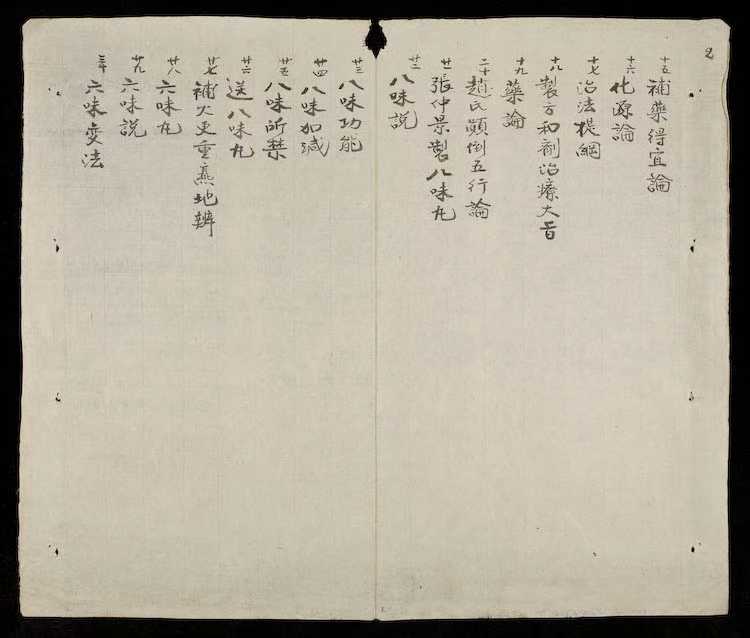 2
十五 補藥得宜論
十六 化源論
十七 治法提綱
十八 製方和劑治療大旨
十九 藥論
二十 趙氏顛倒五行論
廿一 張仲景製八味丸
廿二 八味説
廿三 八味功能
廿四 八味加減
廿五 八味所禁
廿六 送八味丸
廿七 補火更重熟地辨
廿八 六味丸
廿九 六味説
三十 六味变法